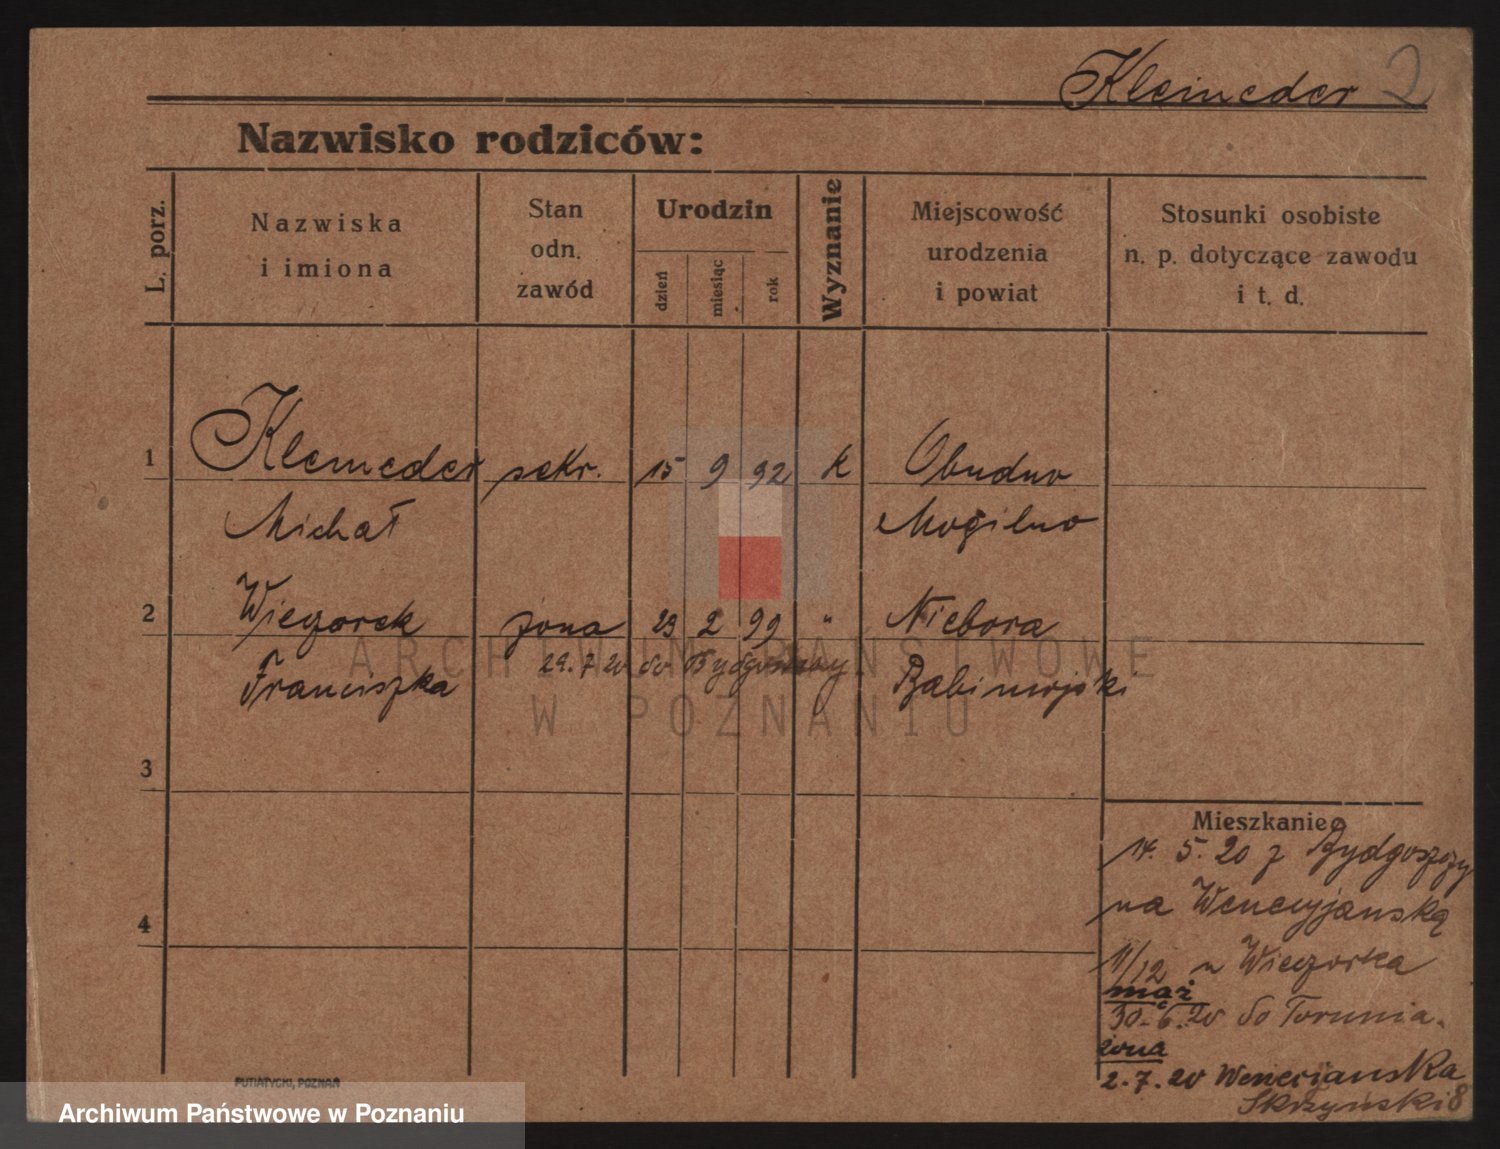 Kleineder 2
Nazwisko rodziców:
L. porz.
Nazwiska
i imiona
Stan
odn.
zawód
Urodzin
dzień
miesiąc
rok
Wyznanie
Miejscowość
urodzenia
i powiat
Stosunki osobiste
n. p. dotyczące zawodu
i t. d.
1 Kleineder sekr. 15 9 92 k Obudno
Michał Mogilno
2 Wieczorek żona 23 2 99 " Niebora
29.7 20 do Bydgoszczy
Franciszka Babimojski
3
4
Mieszkanie
14. 5. 20 z Bydgoszczy
na Wenecyjańską
11/12 u Wieczorka
mąż
30.6.20 do Torunia.
żona
2.7.20 Weneciańska
Skrzyński 8
PUTIATYCKI, POZNAŃ
ARCHIWUM PAŃSTWOWE
W POZNANIU
Archiwum Państwowe w Poznaniu